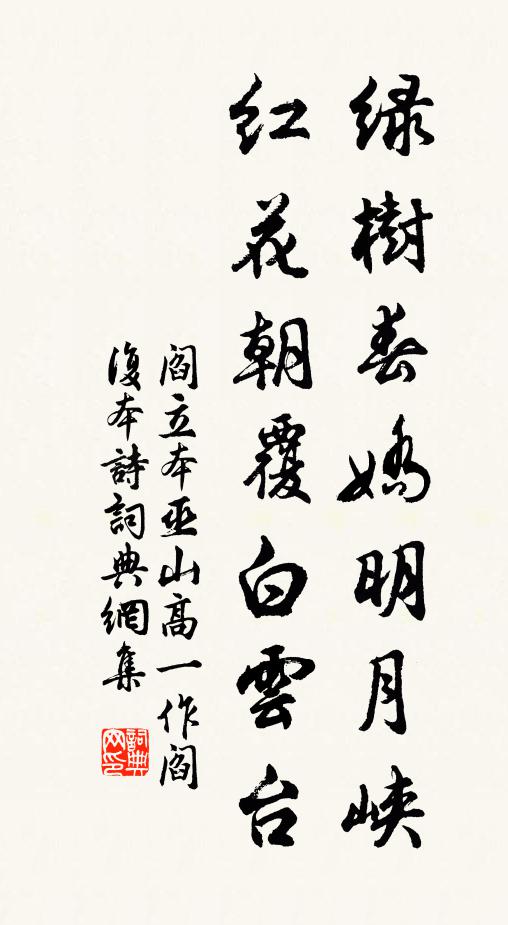 绿樹春嬌明月峽
紅花朝覆白雲台
閻立本巫山高一作閻
復本詩詞典網集
詞典
网印